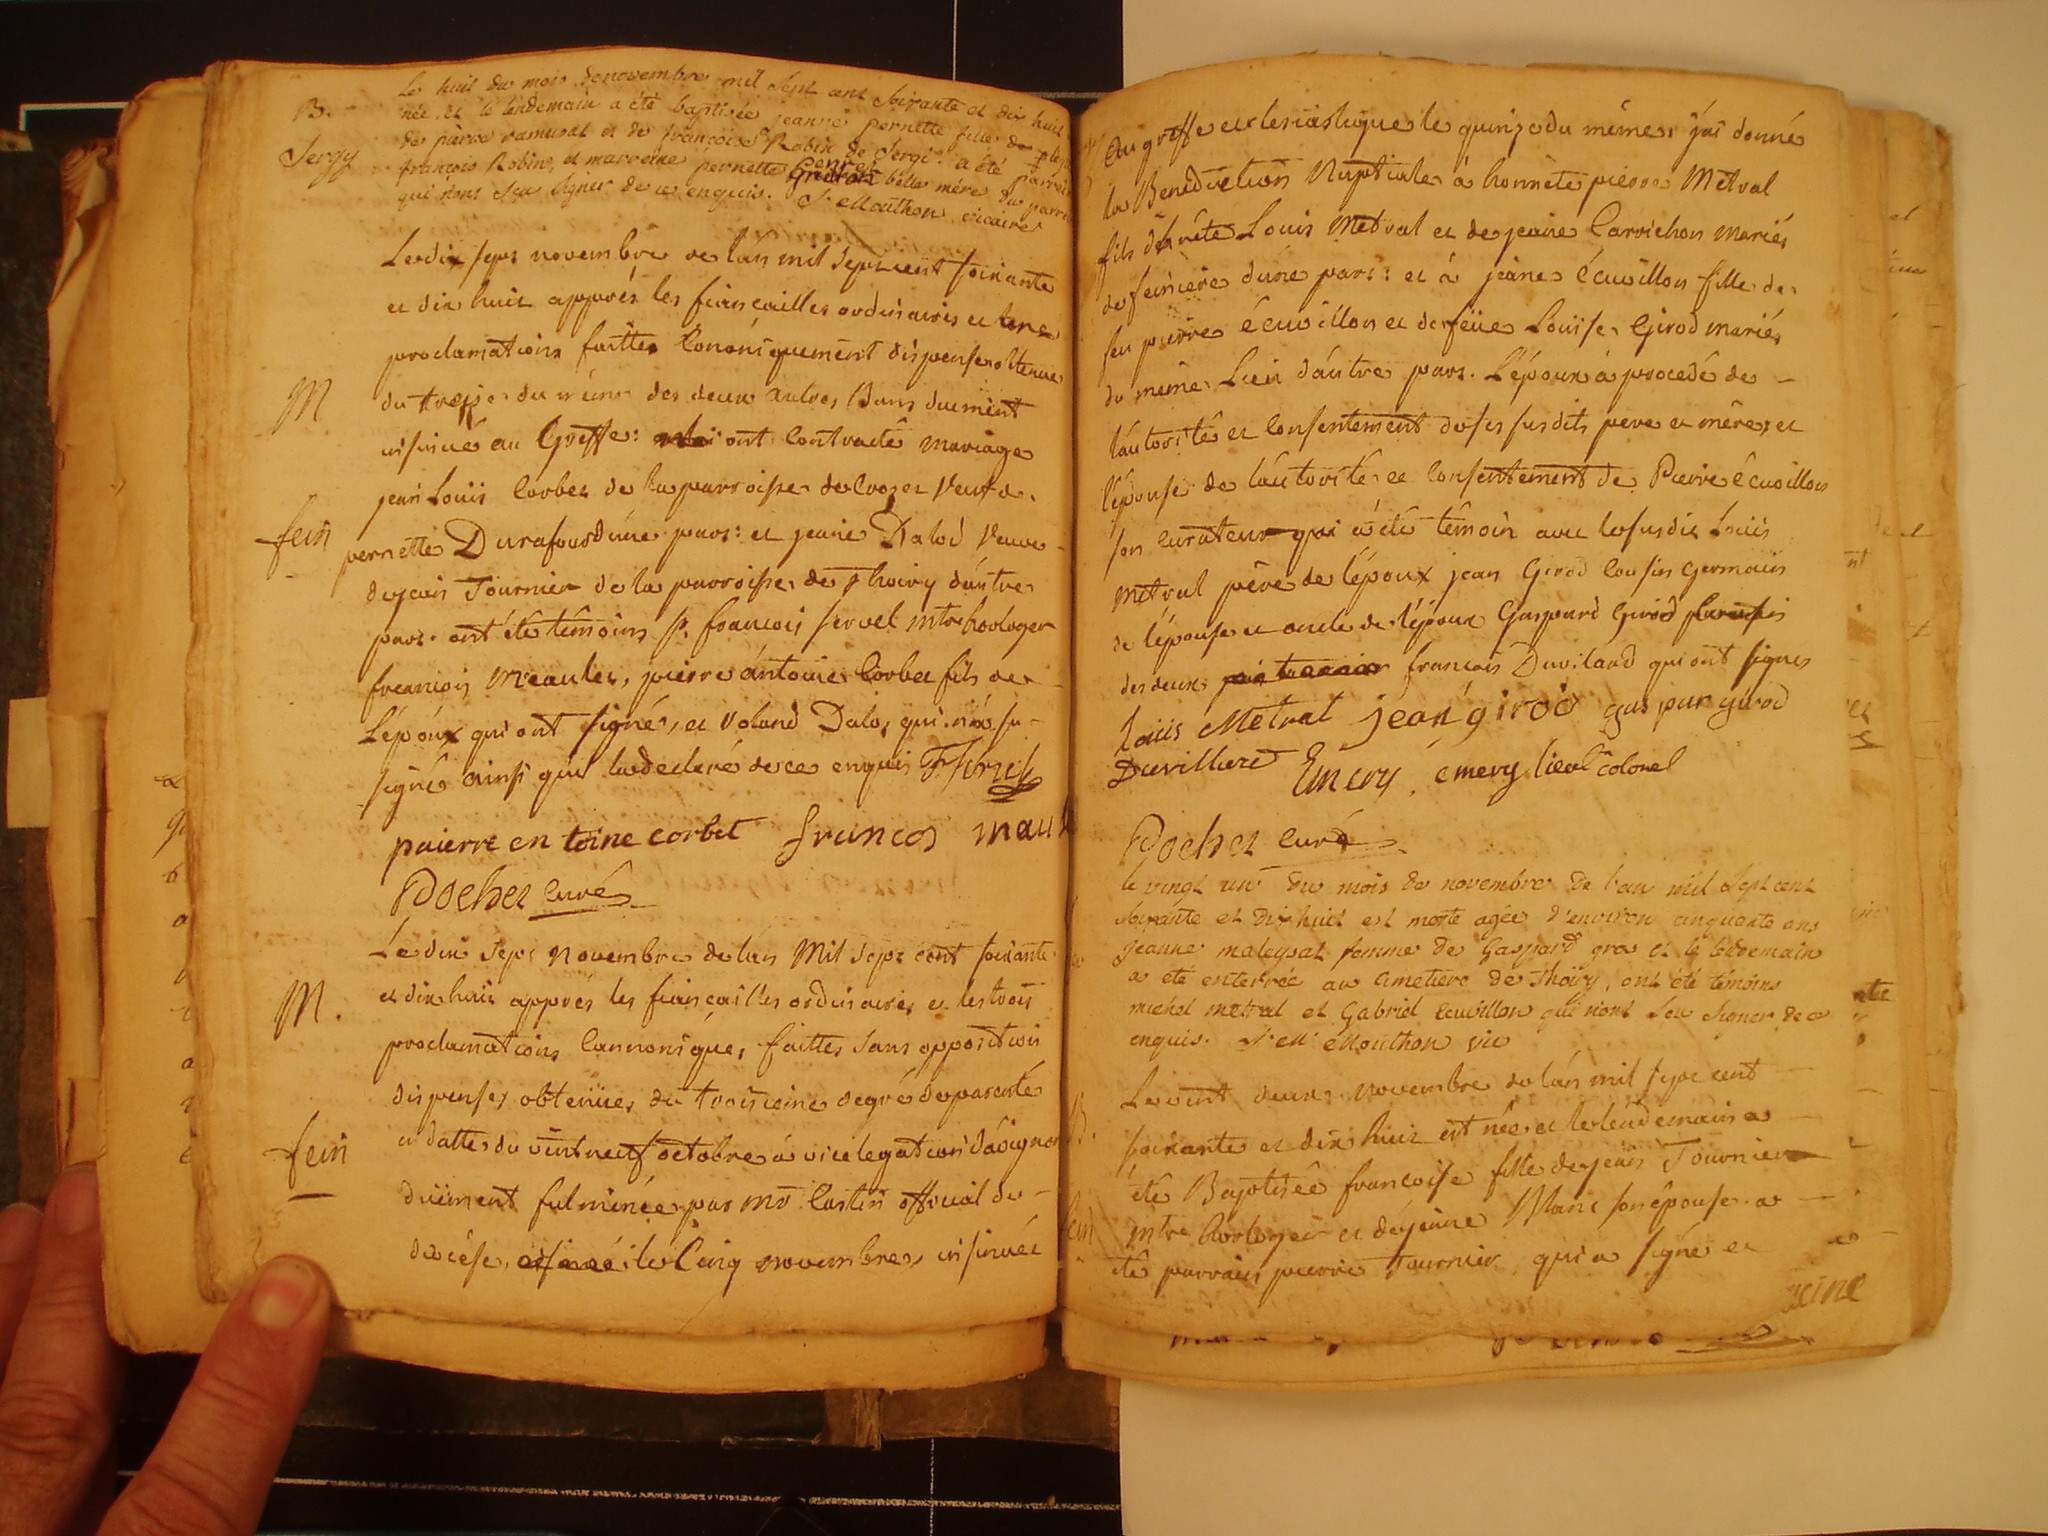 B.
Sergy
Le huit du mois de novembre mil sept cent soixante et dix huit
née, et le lendemain a été baptisée jeanne pernette fille de
de pierre ramusat et de françoise Robin de Sergi. a été parrein
françois Robin, et marreine pernette belle mère du parrein
qui nont sçu signer de ce enquis. J. Mouthon vicaire
Le dix sept novembre de lan mil sept cent soixante
et dix huit apprés les fiançailles ordinaires et une
proclamations faittes Canoniquement dispense obtenue
M
du treize du même des deux autres Bans duement
insinué au Greffe: ont Contracté mariage
jean Louis Corbet de la parroisse de Crozet Veuf de
fein
pernette Durafour dune part: et jeane Dalod Veuve
de jean Tournier de la parroisse de thoiry dautre
part. ont été témoins p. françois servel mtre horloger
françois meaulet, pierre antoine Corbet fils de
Lépoux qui ont signé, et Voland Dalos qui na su
signé ainsi quil la declaré de ce enquis F Servel
paierre en toine corbet francos mault
Pochet Curé
Le dix sept novembre de lan Mil sept cent soixante
M.
et dix huit apprés les fiançailles ordinaires et les trois
proclamations Cannonique, faittes sans opposition
dispenses obtenües du troisieme degré de parenté
fein
en datte du vint neuf octobre a vicelegation davignon
düement fulminée par mr Castin official du
diocèse, le Cinq novembre, insinuée
au greffe ecclesiastique le quinze du même: jai donné
la Benediction Nuptiale à honnête pierre Metral
fils dhnête Louis Metral et de jeane Carrichon mariés
de feiniere dune part: et à jeane écuvillon fille de
feu pierre écuvillon et de feüe Louise Girod mariés
du même Lieu dautre part. Lépoux a procedé de
lautorité et Consentement de ses susdits pere et mère, et
lépouse de lautorité et Consentement de Pierre écuvillon
son curateur qui a été témoin avec le susdit Louis
Metral père de lépoux jean Girod Cousin Germain
de lépouse et oncle de lépoux Gaspard Girod
des deux françois Duvilard qui ont signés
Louis Metral jean girod gas par girod
Duvillard Emery, emery lieut colonel
Pochet Curé
le vingt un du mois de novembre de l'an mil Sept cent
soixante et dix huit est morte agée d'environ cinquante ans
jeanne malegsat femme de Gaspard gros et le lendemain
a été enterrée au Cimetiere de Thoiry, ont été témoins
michel metral et Gabriel Ecuvillon qui nont sçu signer de ce
enquis. Mouthon vic
Le vint deux novembre de lan mil sept cent
B.
soixante et dix huit est née et le lendemain a
été Baptisée françoise fille de jean Tournier
fein
mtre horloger et de jeane Blanc son épouse. a
été parrain pierre Tournier qui a signé et